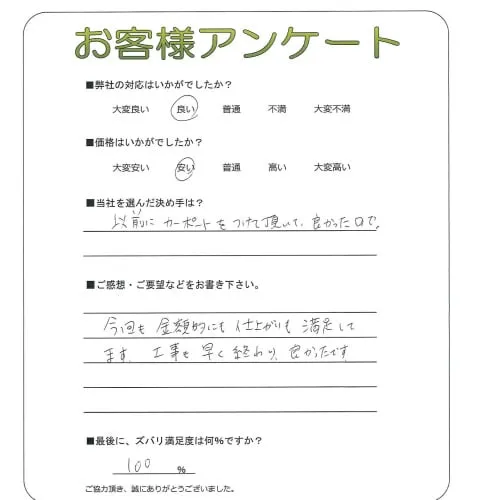 お客様アンケート
■弊社の対応はいかがでしたか？
大変良い 良い 普通 不満 大変不満
■価格はいかがでしたか？
大変安い 安い 普通 高い 大変高い
■当社を選んだ決め手は？
以前に カーポートを つけて頂いて、良かったので。
■ご感想・ご要望などをお書き下さい。
今回も 金額的にも 仕上がりも 満足して
ます。工事も 早く 終わり、良かったです
■最後に、ズバリ満足度は何%ですか？
100 %
ご協力頂き、誠にありがとうございました。